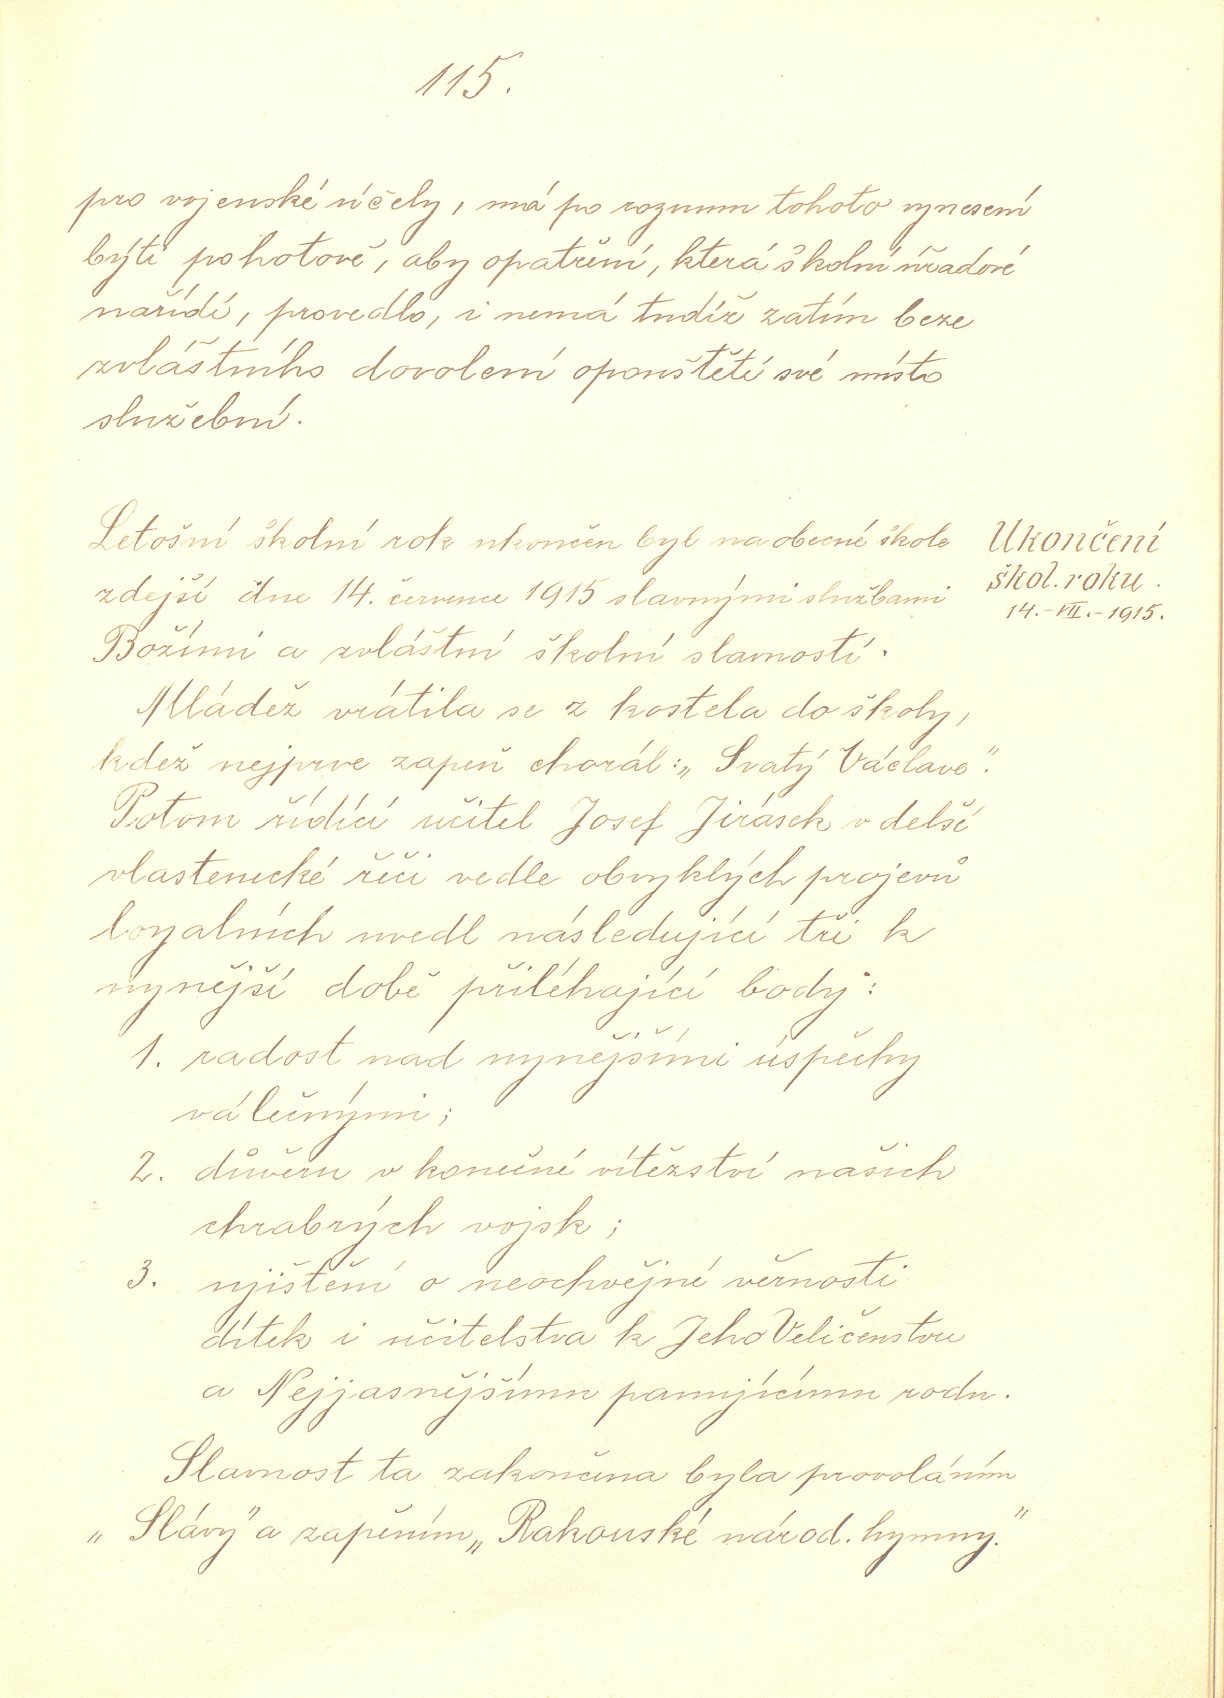 115.
pro vojenské účely, má po rozumu tohoto vynesení
býti pohotově, aby opatření, která školní úřadové
nařídí, provedlo, i nemá tudíž zatím beze
zvláštního dovolení opouštěti své místo
služební.
Letošní školní rok ukončen byl na obecné škole
zdejší dne 14. července 1915 slavnými službami
Božími a zvláštní školní slavností.
Mládež vrátila se z kostela do školy,
kdež nejprve zapěn chorál: „Svatý Václave".
Potom řídící učitel Josef Jirásek v delší
vlastenecké řeči vedle obvyklých projevů
loyalních uvedl následující tři k
nynější době přiléhající body:
1. radost nad nynějšími úspěchy
válečnými;
2. důvěru v konečné vítězství našich
chrabrých vojsk;
3. ujištění o neochvějné věrnosti
dítek i učitelstva k Jeho Veličenstvu
a Nejjasnějšímu panujícímu rodu.
Slavnost ta zakončena byla provoláním
„Slávy" a zapěním „Rakouské národ. hymny."
Ukončení
škol. roku.
14. - VII. - 1915.